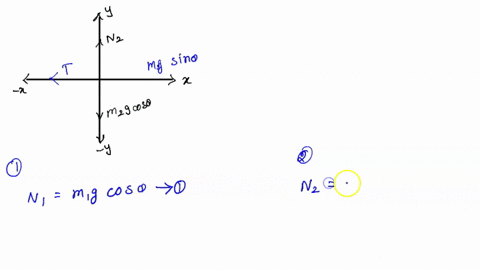 y
N₂
T
mg sinθ
-x
x
m₂gcosθ
-y
①
②
N₁ = m₁g cosθ →①
N₂ =